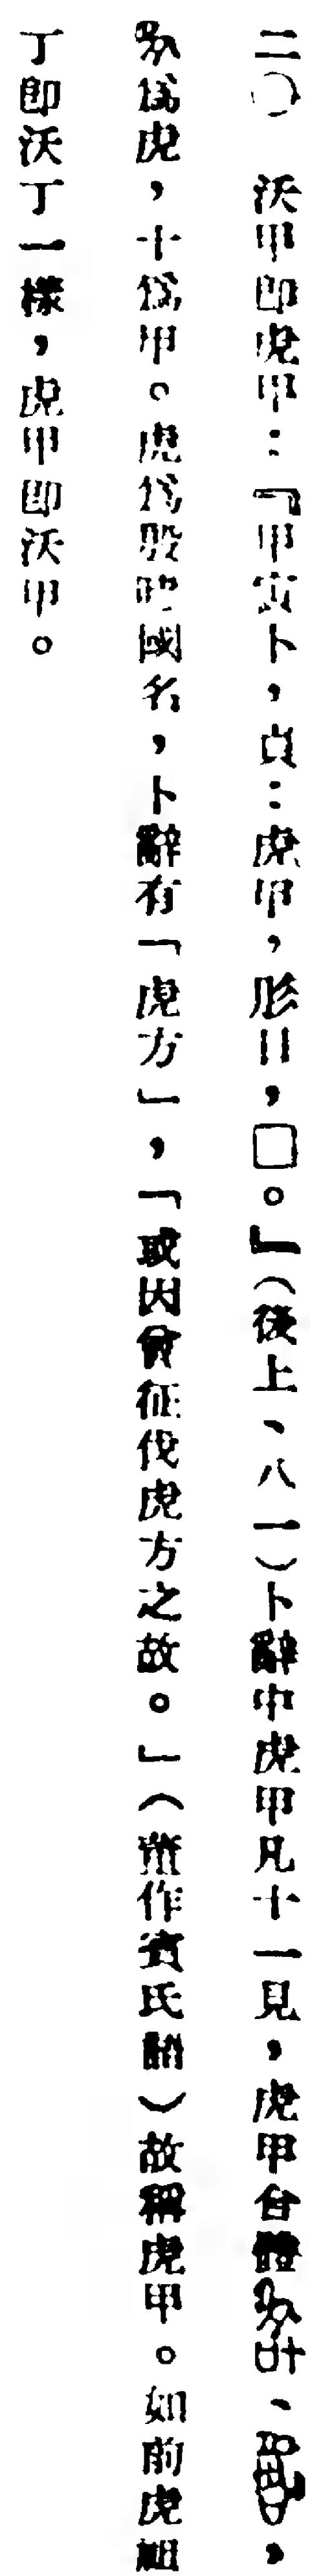 二〇　沃甲即虎甲：『甲寅卜，貞：虎甲，肜日，□。』（後上、八一）卜辭中虎甲凡十一見，虎甲合體、，
為虎，十為甲。虎為殷時國名，卜辭有「虎方」，「或因曾征伐虎方之故。」（董作賓氏語）故稱虎甲。如前虎祖
丁即沃丁一樣，虎甲即沃甲。